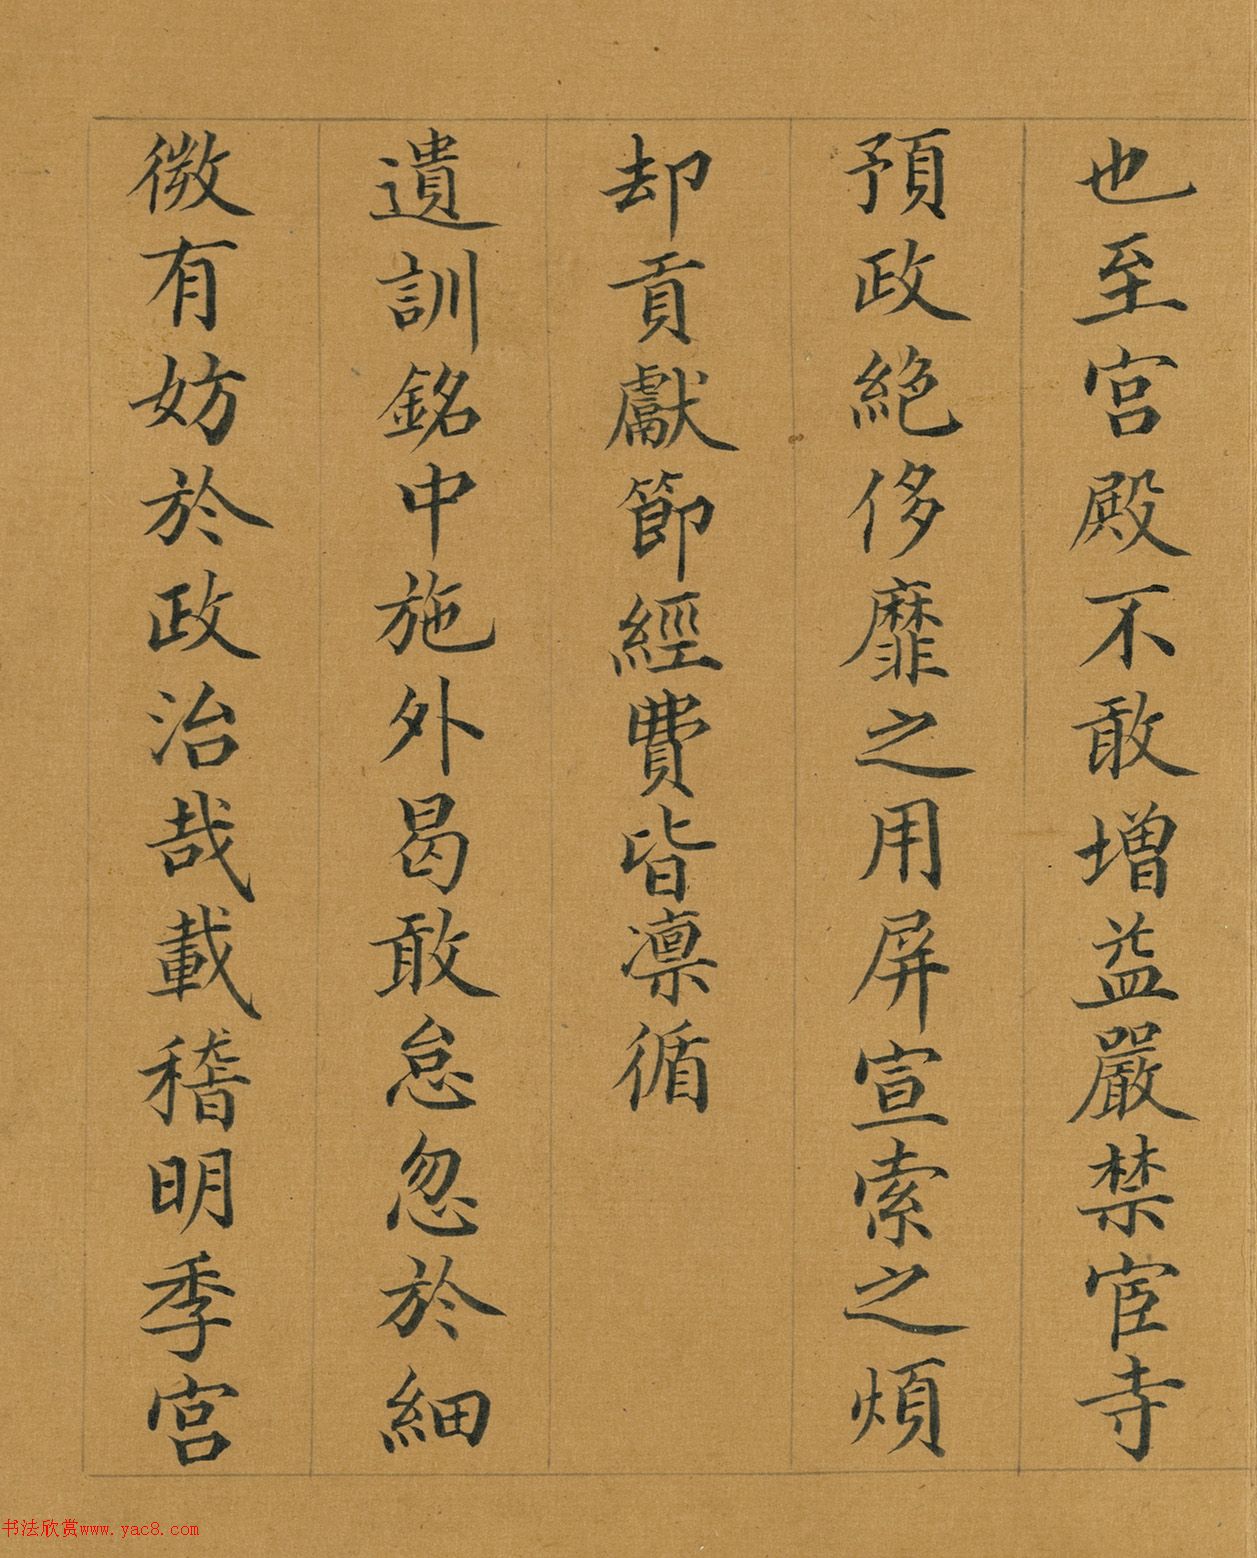 也至宮殿不敢增益嚴禁宦寺
預政絶侈靡之用屏宣索之煩
却貢獻節經費皆凛循
遺訓銘中施外曷敢怠忽於細
微有妨於政治哉載稽明季宮
书法欣赏www.yac8.com